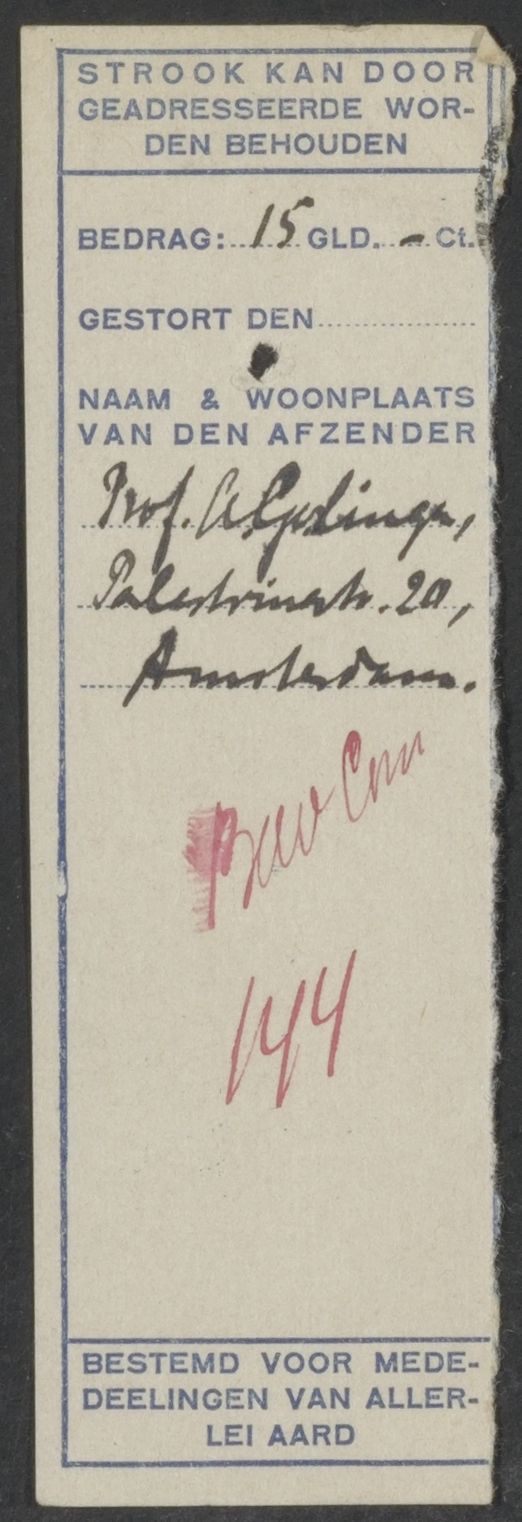 STROOK KAN DOOR
GEADRESSEERDE WOR-
DEN BEHOUDEN
BEDRAG: 15 GLD. - Ct.
GESTORT DEN
NAAM & WOONPLAATS
VAN DEN AFZENDER
Prof.
Palestrinastr. 20,
Amsterdam.
Com
144
BESTEMD VOOR MEDE-
DEELINGEN VAN ALLER-
LEI AARD